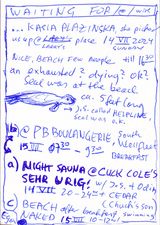 WAITING FOR
... KASIA PLAZINSKA to picker
us up @ place 14 VII 2024
LARRY'S SUNDAY
NICE, BEACH few people till
an exhausted? dying? ok?
seal was at the beach
ca. 5 feet long
J.S. called HELPLINE,
seal was o.k.
b) @ PB BOULANGERIE, South
Wellfleet
15 VII 730 - 930
BREAKFAST
a) NIGHT SAUNA @ CUCK COLE'S
SEHR WRIG! w/ J.S. +
14 VII 20-24h CEDAR
c) BEACH after breakfast swimming
NAKED 15 VII 10-12h!